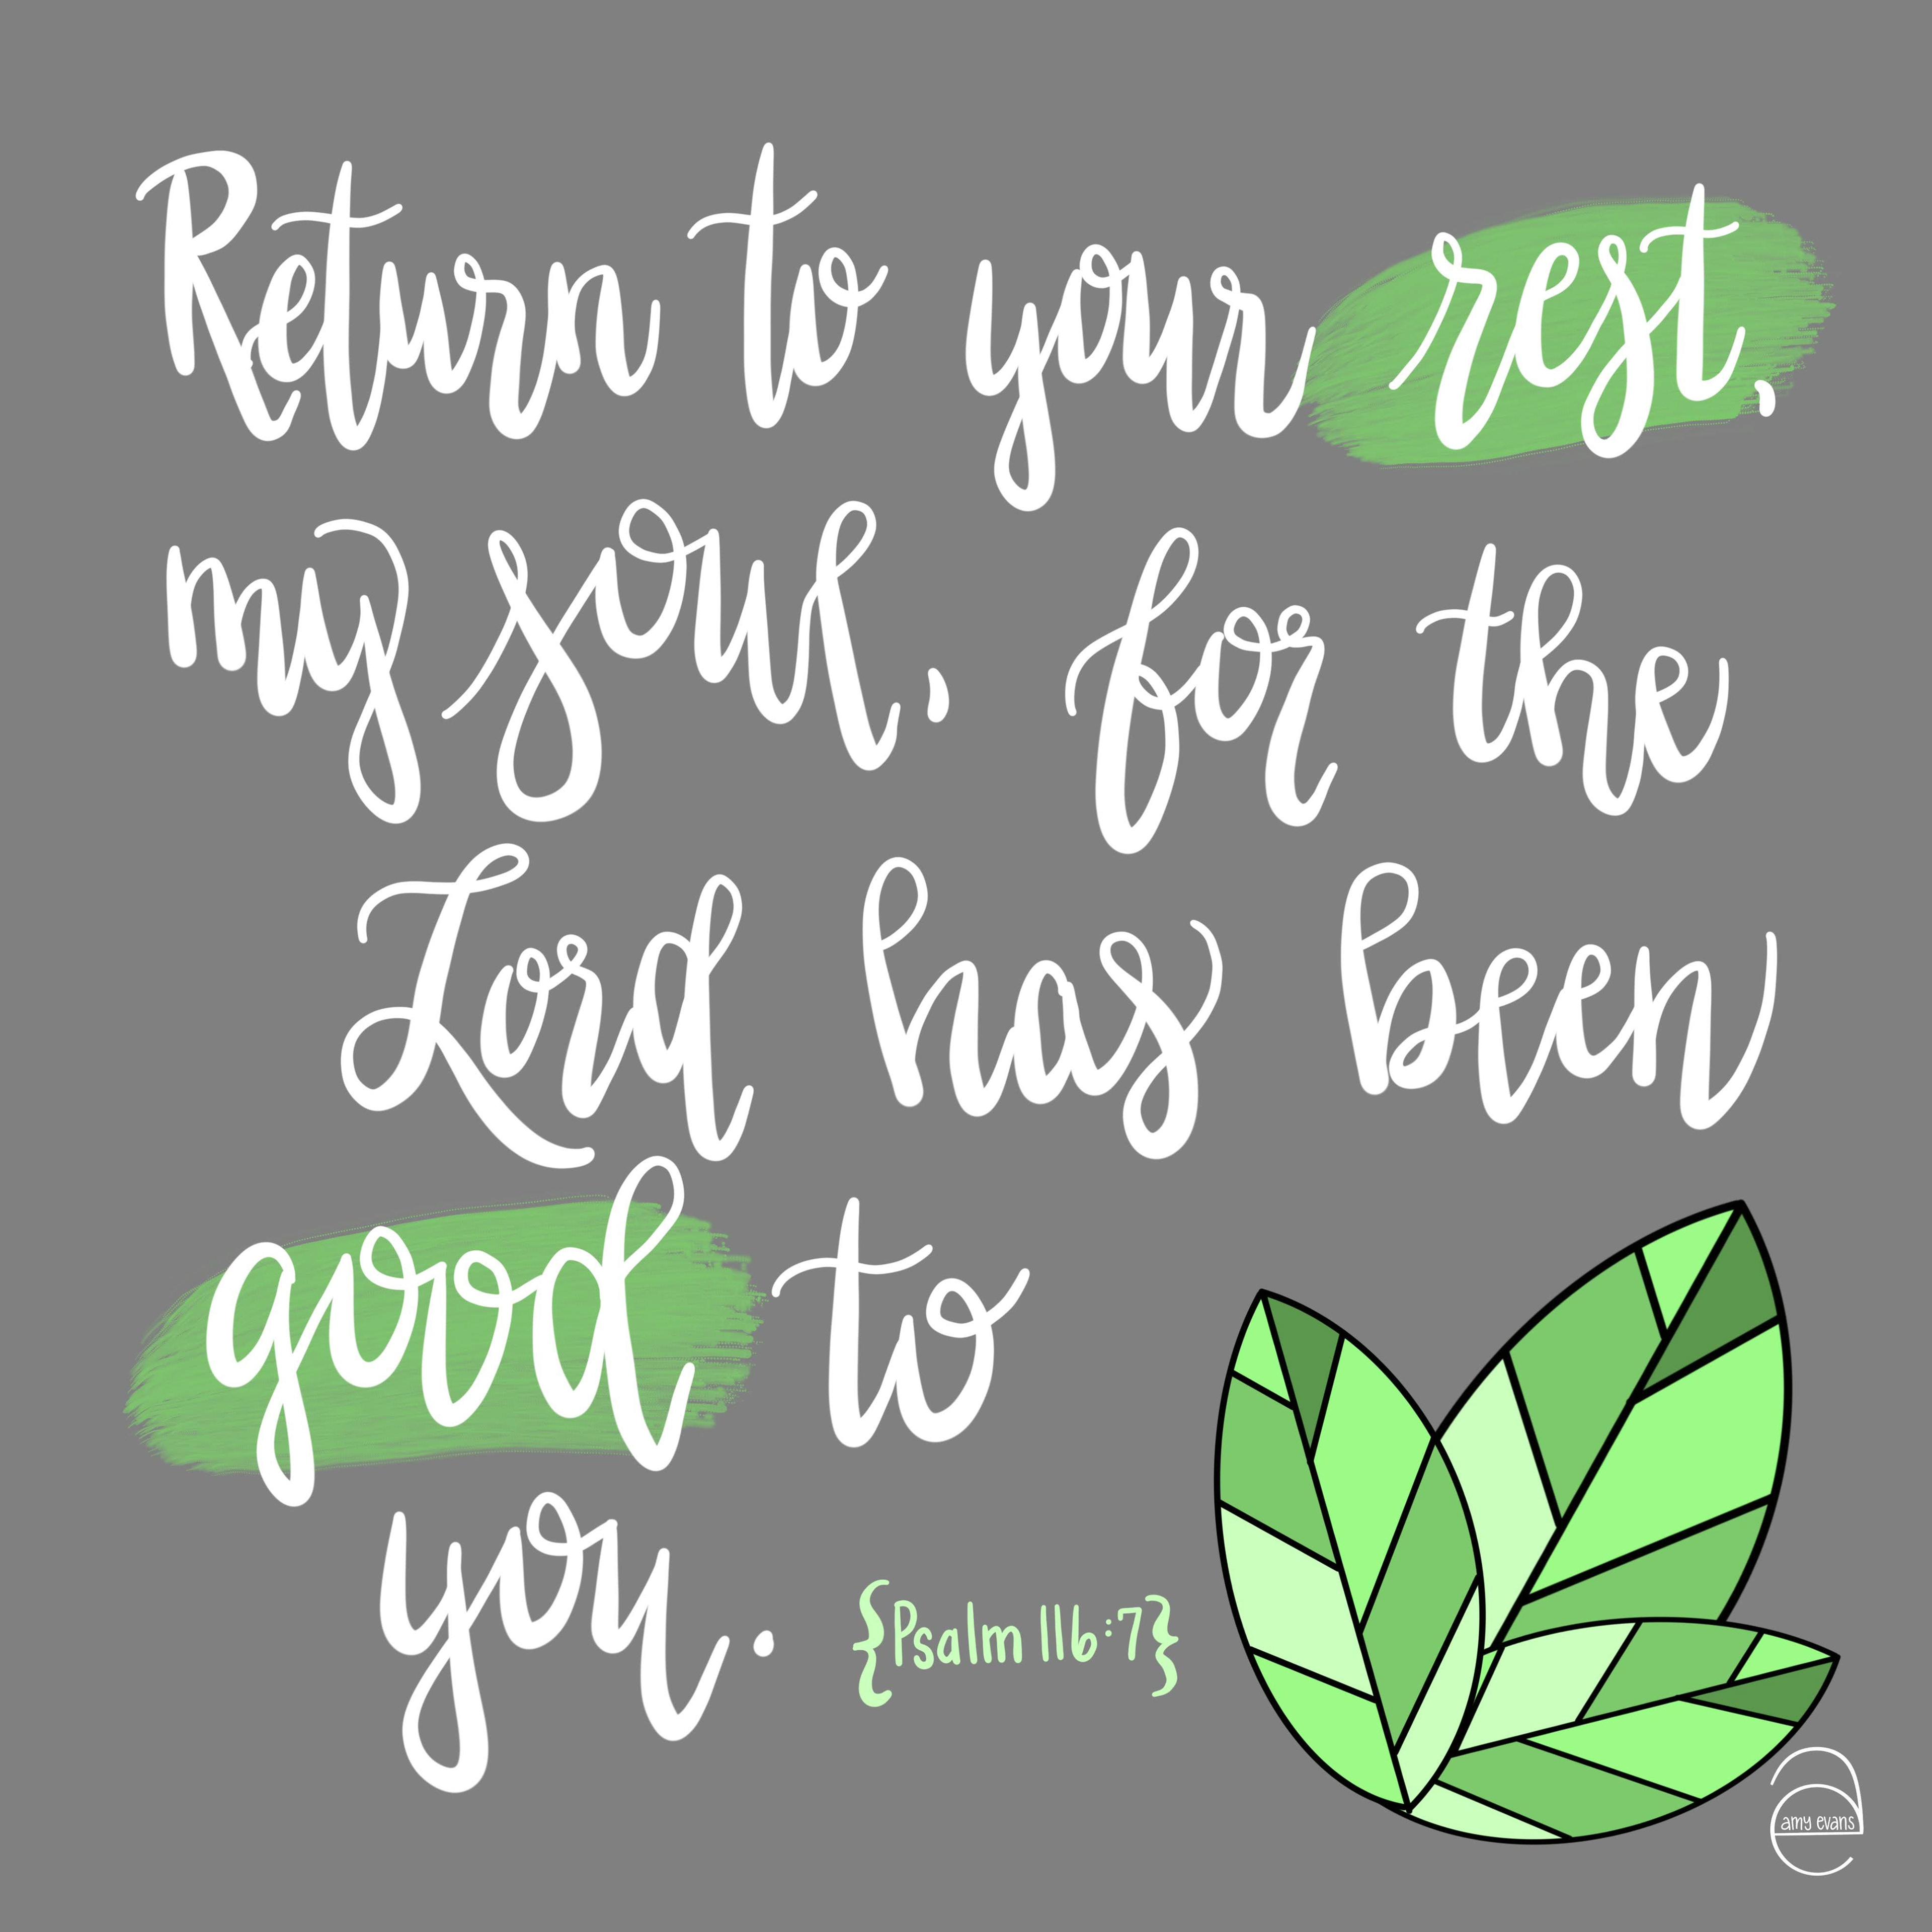 Return to your rest,
my soul, for the
Lord has been
good to
you.
{Psalm 116:7}
amy evans